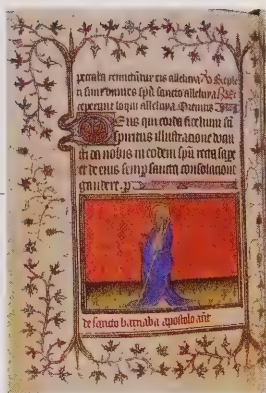 peccata remittuntur eis alleluya V Reple
ti sunt omnes spu sancto alleluya
ceperunt loqui alleluya Oremus
Deus qui corda fidelium sci
spiritus illustracione docu
isti da nobis in eodem spu recta sape
et de eius semp sancta consolacione
gaudere p
de sancto barnaba apostolo ant